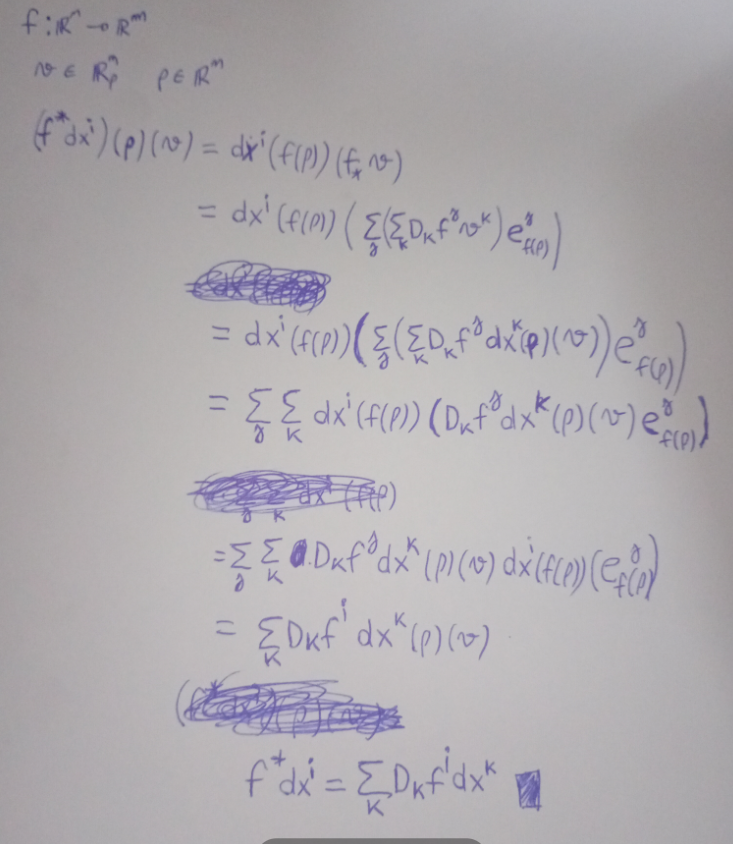 f : ℝⁿ → ℝᵐ
v ∈ ℝⁿₚ p ∈ ℝᵐ
(f*dxⁱ)(p)(v) = dxⁱ(f(p))(f_* v)
= dxⁱ(f(p)) (∑_j (∑_k D_k f^j v^k) e^j_{f(p)})
= dxⁱ(f(p)) (∑_j (∑_k D_k f^j dx^k(p)(v)) e^j_{f(p)})
= ∑_j ∑_k dxⁱ(f(p)) (D_k f^j dx^k(p)(v) e^j_{f(p)})
= ∑_j ∑_k D_k f^j dx^k(p)(v) dxⁱ(f(p))(e^j_{f(p)})
= ∑_k D_k fⁱ dx^k(p)(v)
f*dxⁱ = ∑_k D_k fⁱ dx^k ∎